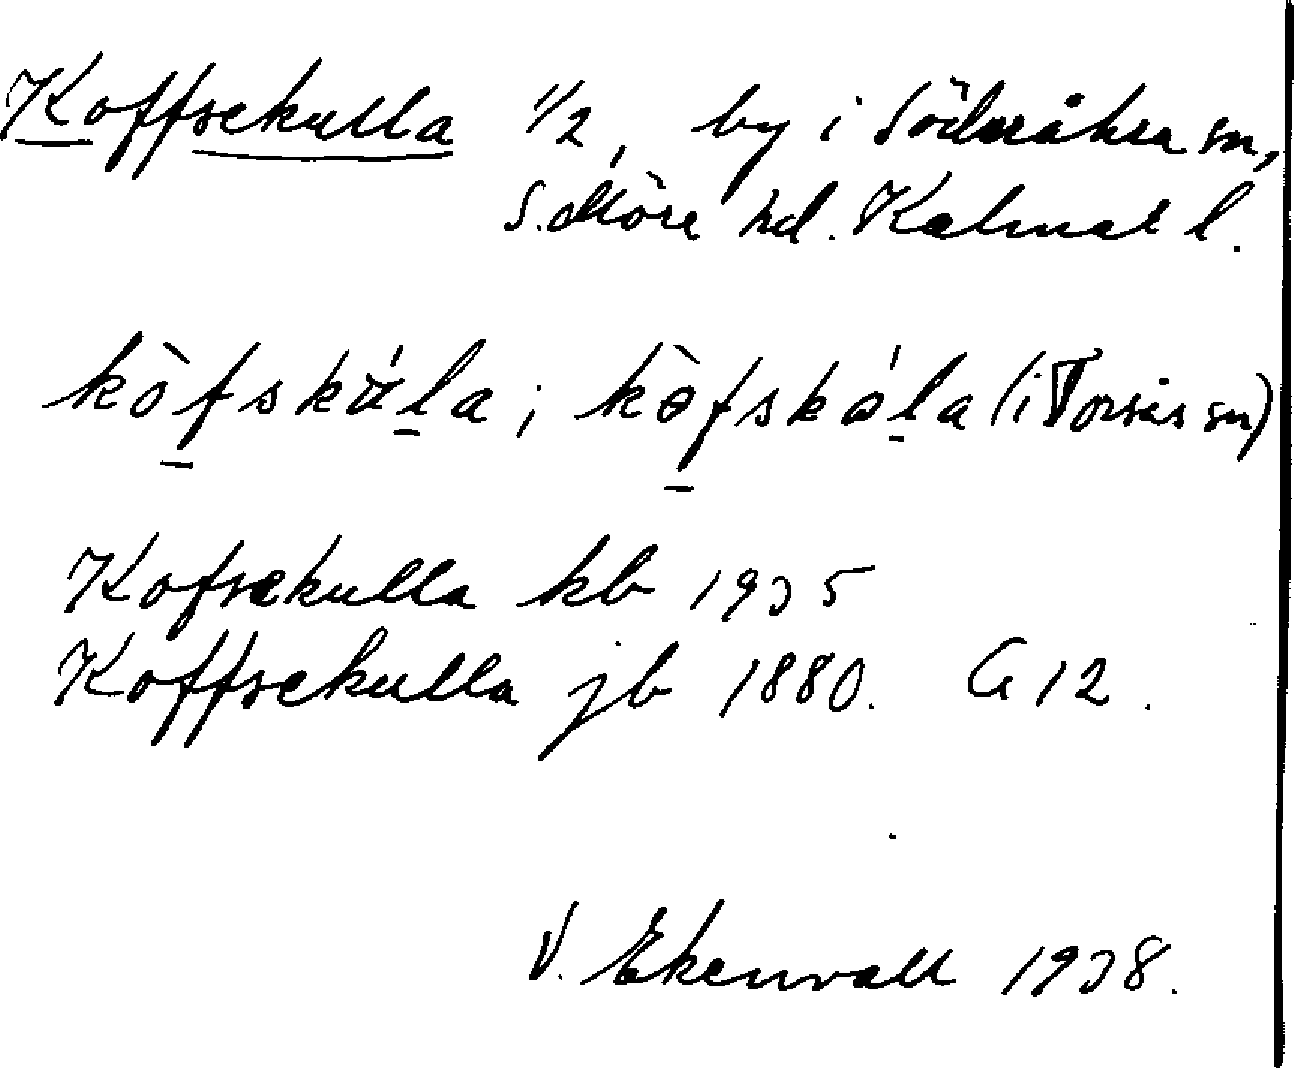 Koffsekulla 1/2, by i Söderåkra sn,
S. Möre hd. Kalmar l.
kòfskála; kòfskóla (i Torsås sn)
Kofsekulla kb 1935
Koffsekulla jb 1880. G 12.
V. Ekenvall 1938.